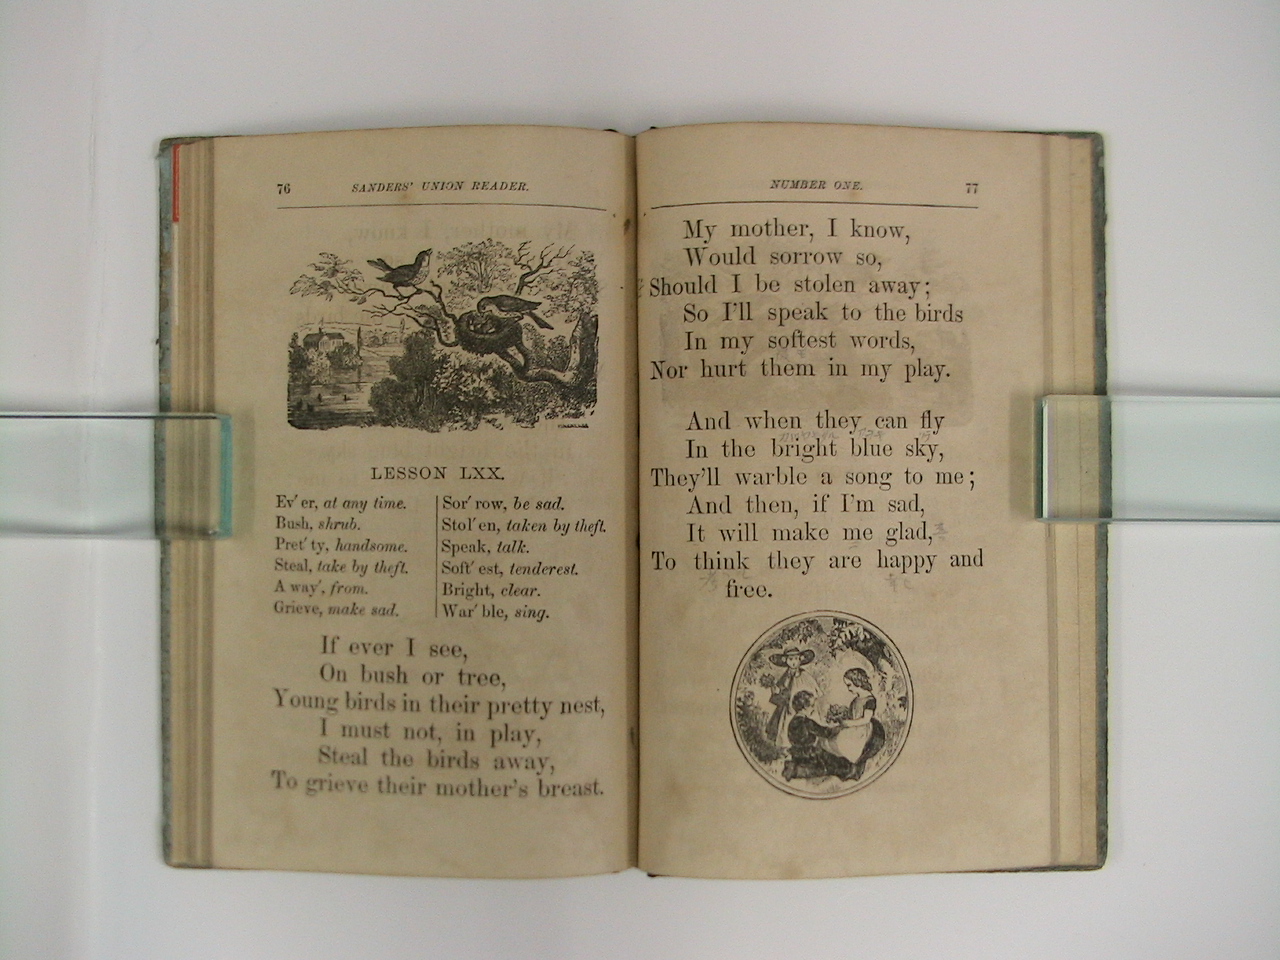 76
SANDERS' UNION READER.
LESSON LXX.
Ev'er, at any time.
Bush, shrub.
Pret'ty, handsome.
Steal, take by theft.
A way', from.
Grieve, make sad.
Sor'row, be sad.
Stol'en, taken by theft.
Speak, talk.
Soft'est, tenderest.
Bright, clear.
War'ble, sing.
If ever I see,
On bush or tree,
Young birds in their pretty nest,
I must not, in play,
Steal the birds away,
To grieve their mother's breast.
NUMBER ONE.
77
My mother, I know,
Would sorrow so,
Should I be stolen away;
So I'll speak to the birds
In my softest words,
Nor hurt them in my play.
And when they can fly
In the bright blue sky,
They'll warble a song to me;
And then, if I'm sad,
It will make me glad,
To think they are happy and
free.